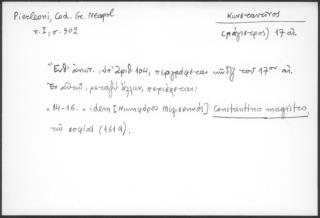 Pierleoni, Cod. Gr. Neapol. Κωνσταντῖνος
τ. I, σ. 302 (μάγιστρος) 17 αἰ.
Ἔνθ' ἀνωτ. ὑπ' ἀριθ 104, περιγράφεται κῶδιξ τοῦ 17ου αἰ.
Ἐν αὐτῷ, μεταξὺ ἄλλων, περιέχεται:
"14-16. "idem [Νικηφόρος Μυρσινικὸς] Constantino magistro
τῶν σοφῶν (1619).